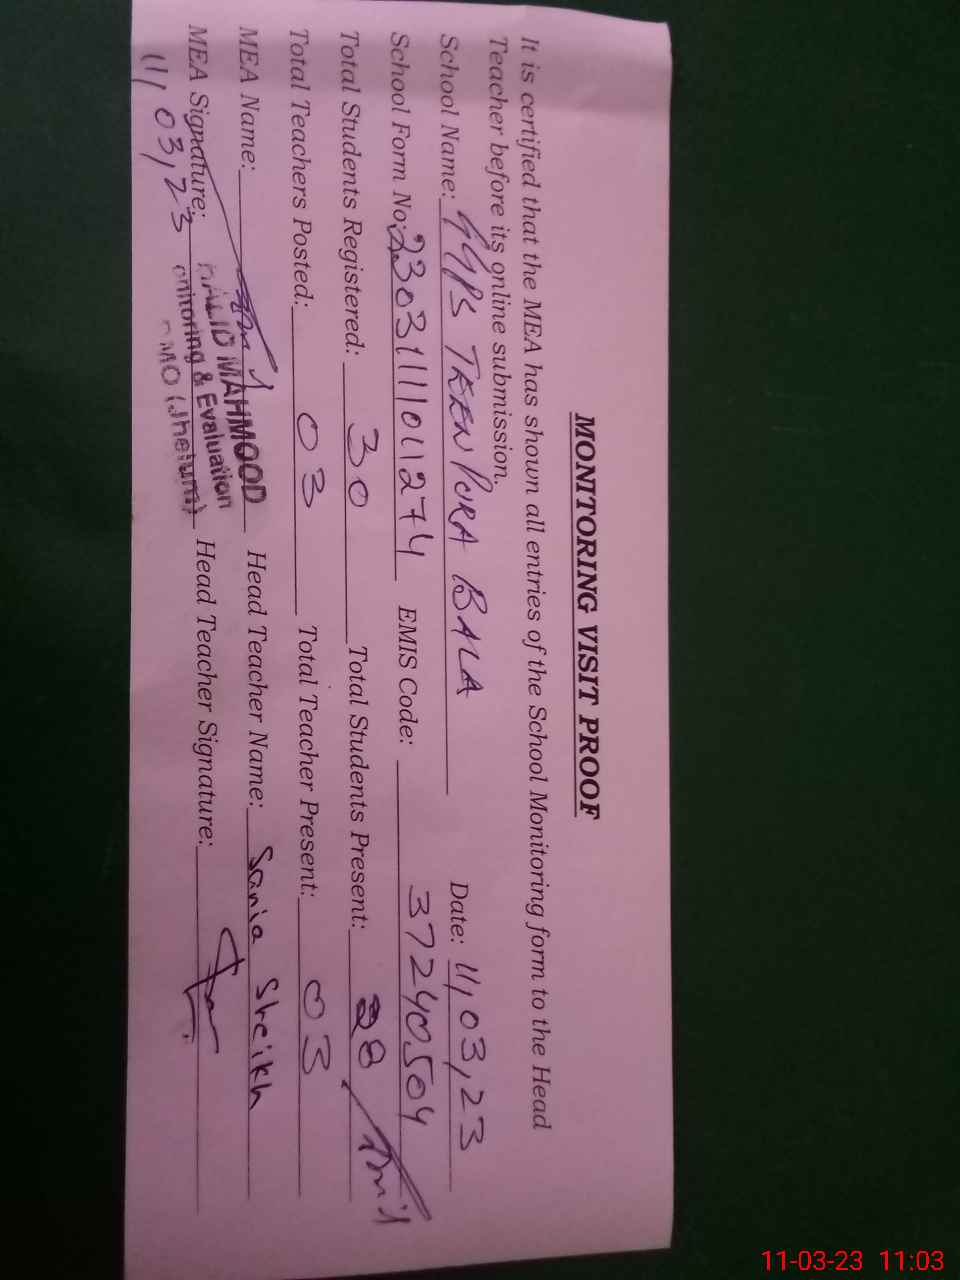 MONITORING VISIT PROOF
It is certified that the MEA has shown all entries of the School Monitoring form to the Head
Teacher before its online submission.
School Name: GGPS TREEN PURA BALA Date: 11,03,23
School Form No: 23031111011274 EMIS Code: 37240504
Total Students Registered: 30 Total Students Present: 28
Total Teachers Posted: 03 Total Teacher Present: 03
MEA Name: MAHMOOD Head Teacher Name: Sania Sheikh
MEA Signature: onitoring & Evaluation Head Teacher Signature:
MO (Jhelum)
11,03,23
11-03-23 11:03